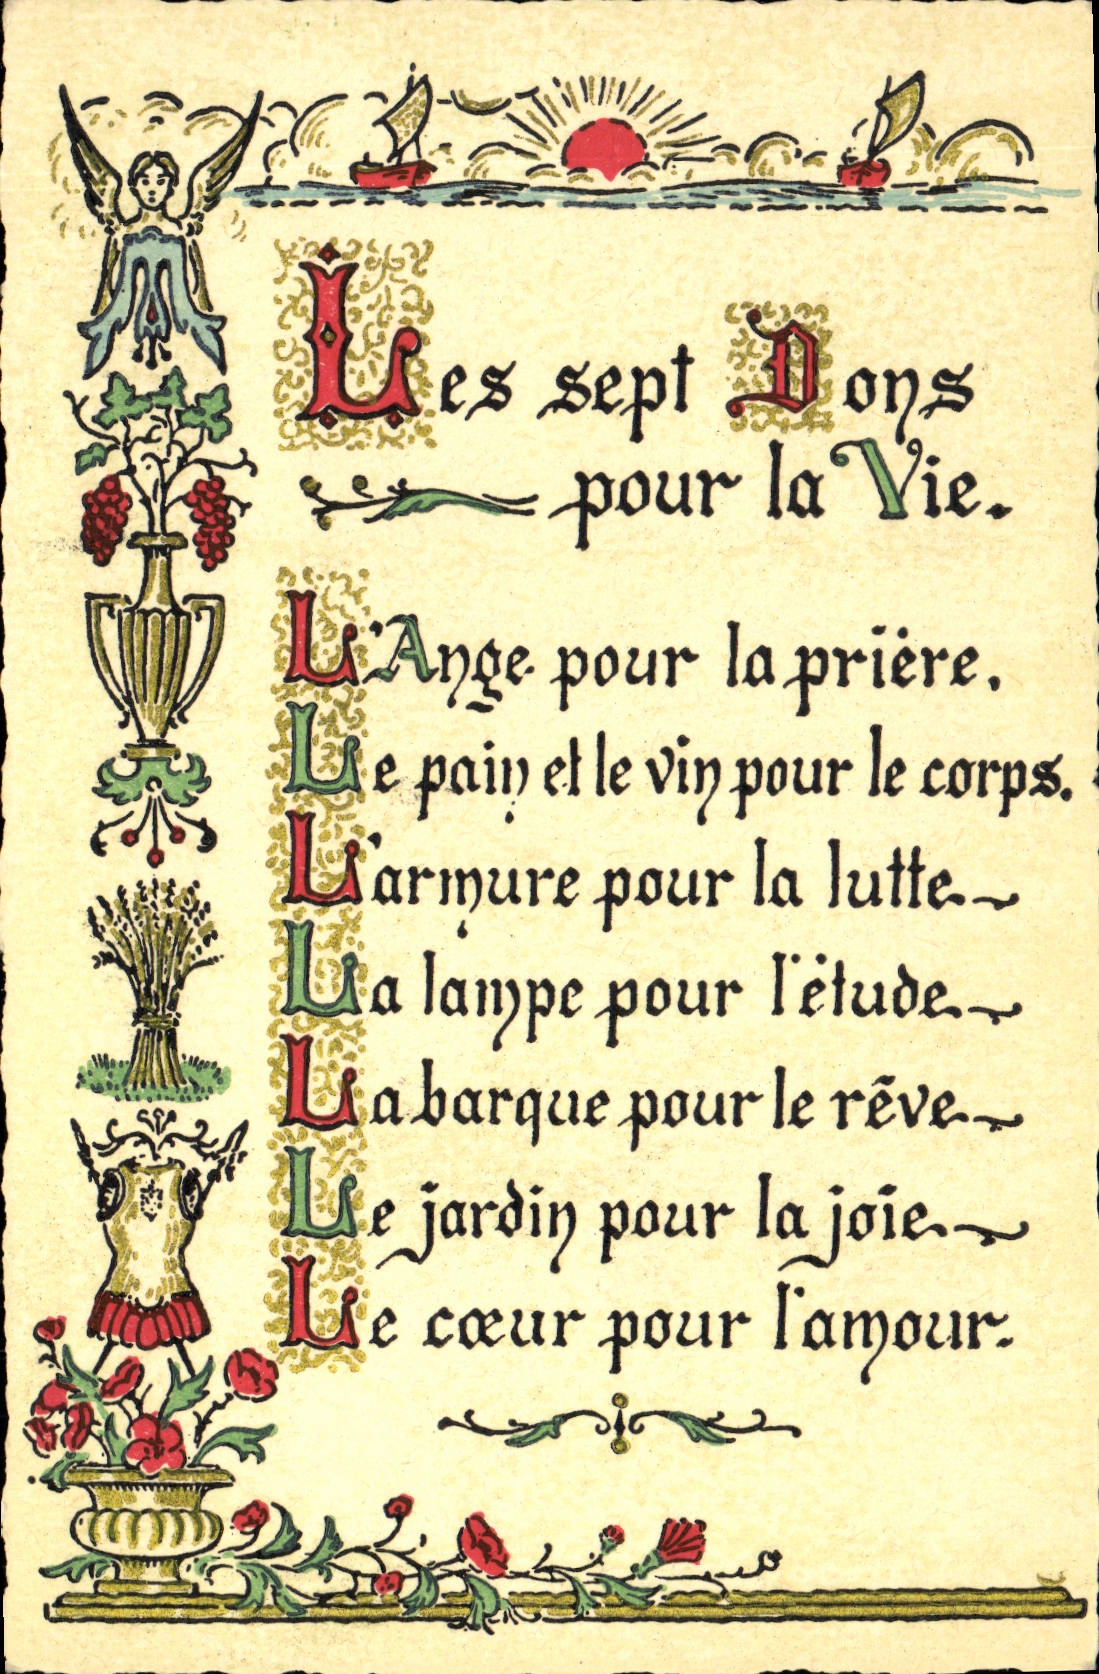 Les sept Dons
pour la Vie.
L'Ange pour la prière.
Le pain et le vin pour le corps.
L'armure pour la lutte.
La lampe pour l'étude.
La barque pour le rêve.
Le jardin pour la joie.
Le cœur pour l'amour.